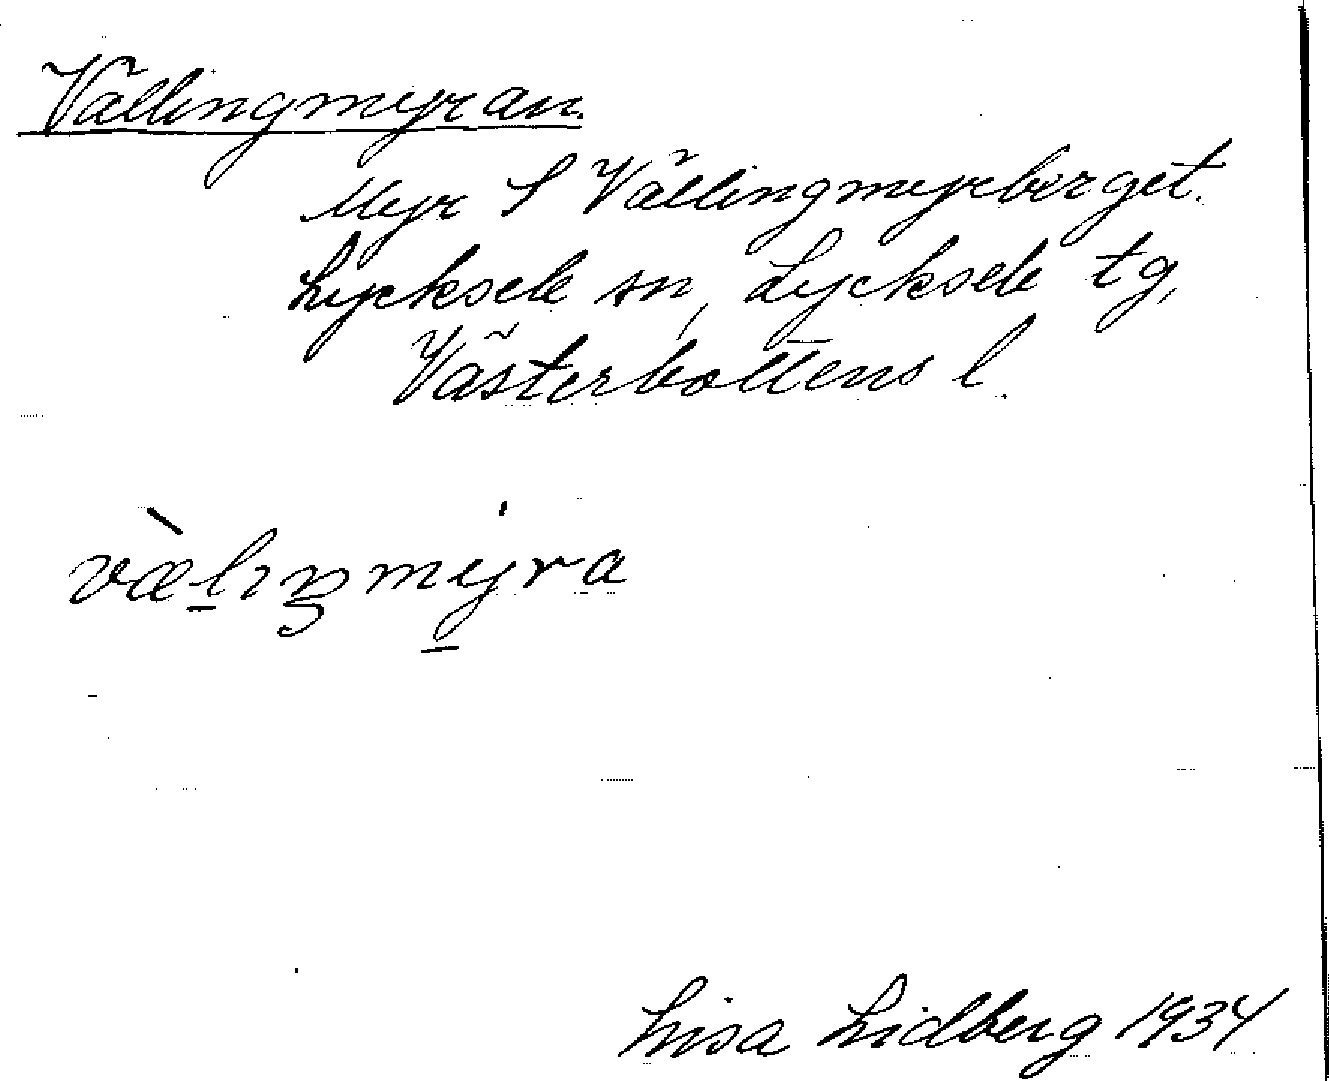 Vällingmyran.
Myr S Vällingmyrberget.
Lycksele sn, Lycksele tg,
Västerbottens l.
væ̀l̠ıŋmy̠̍ra
Lisa Lidberg 1934